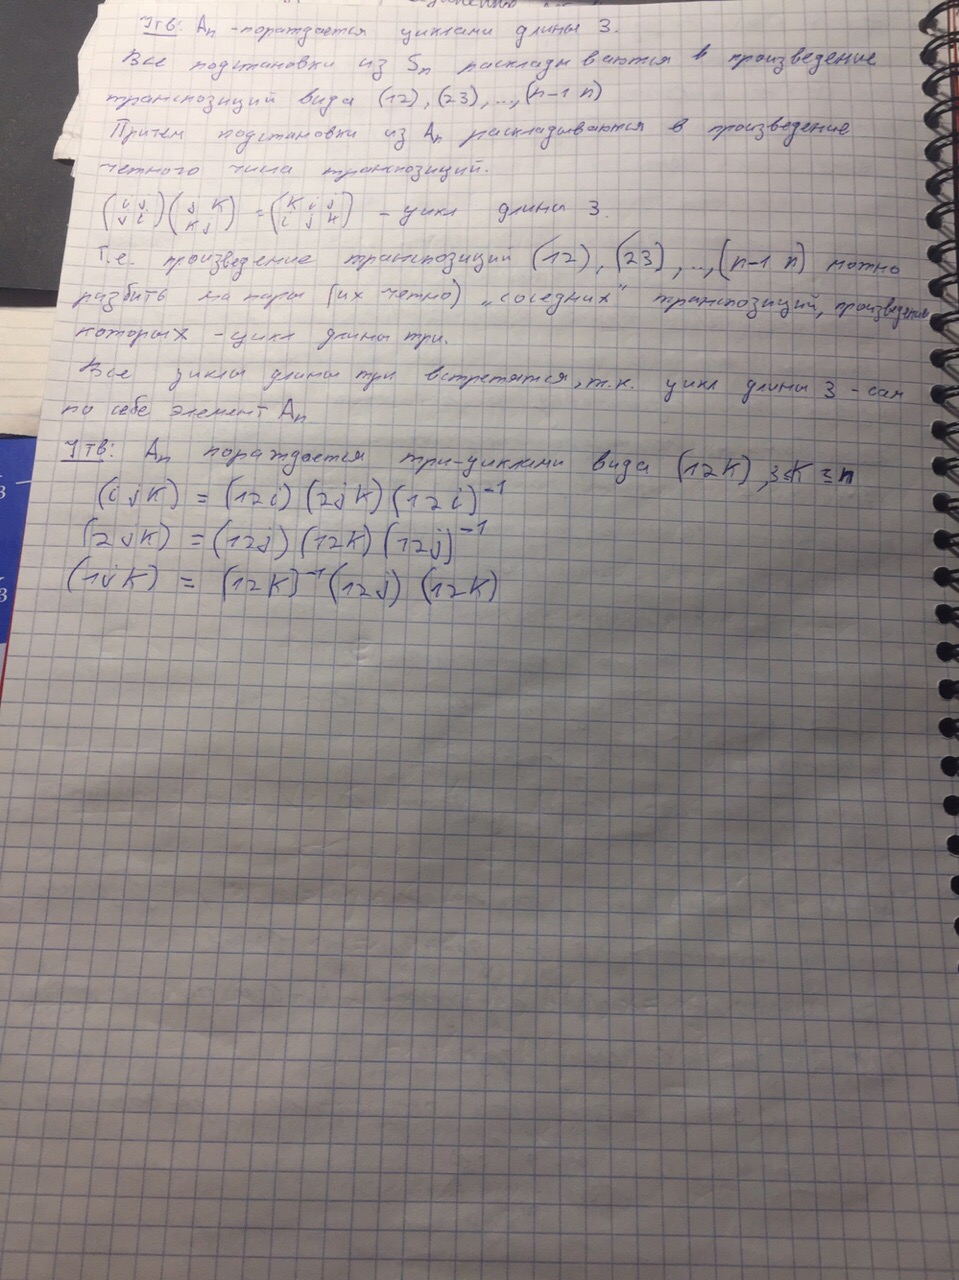 Утв: Aₙ - пораждается циклами длины 3.
Все подстановки из Sₙ раскладываются в произведение
транспозиций вида (12), (23), ..., (n-1 n)
Притем подстановки из Aₙ раскладываются в произведение
четного числа транспозиций.
(i j / j i)(j k / k j) = (k i j / i j k) - цикл длины 3.
Т.е. произведение транспозиций (12), (23), ..., (n-1 n) можно
разбить на пары (их четно) „соседних" транспозиций, произведение
которых - цикл длины три.
Все циклы длины три встретятся, т.к. цикл длины 3 - сам
по себе элемент Aₙ
Утв: Aₙ пораждается три-циклами вида (12k), 3≤k≤n
(ijk) = (12i)(2jk)(12i)⁻¹
(2jk) = (12j)(12k)(12j)⁻¹
(1jk) = (12k)⁻¹(12j)(12k)